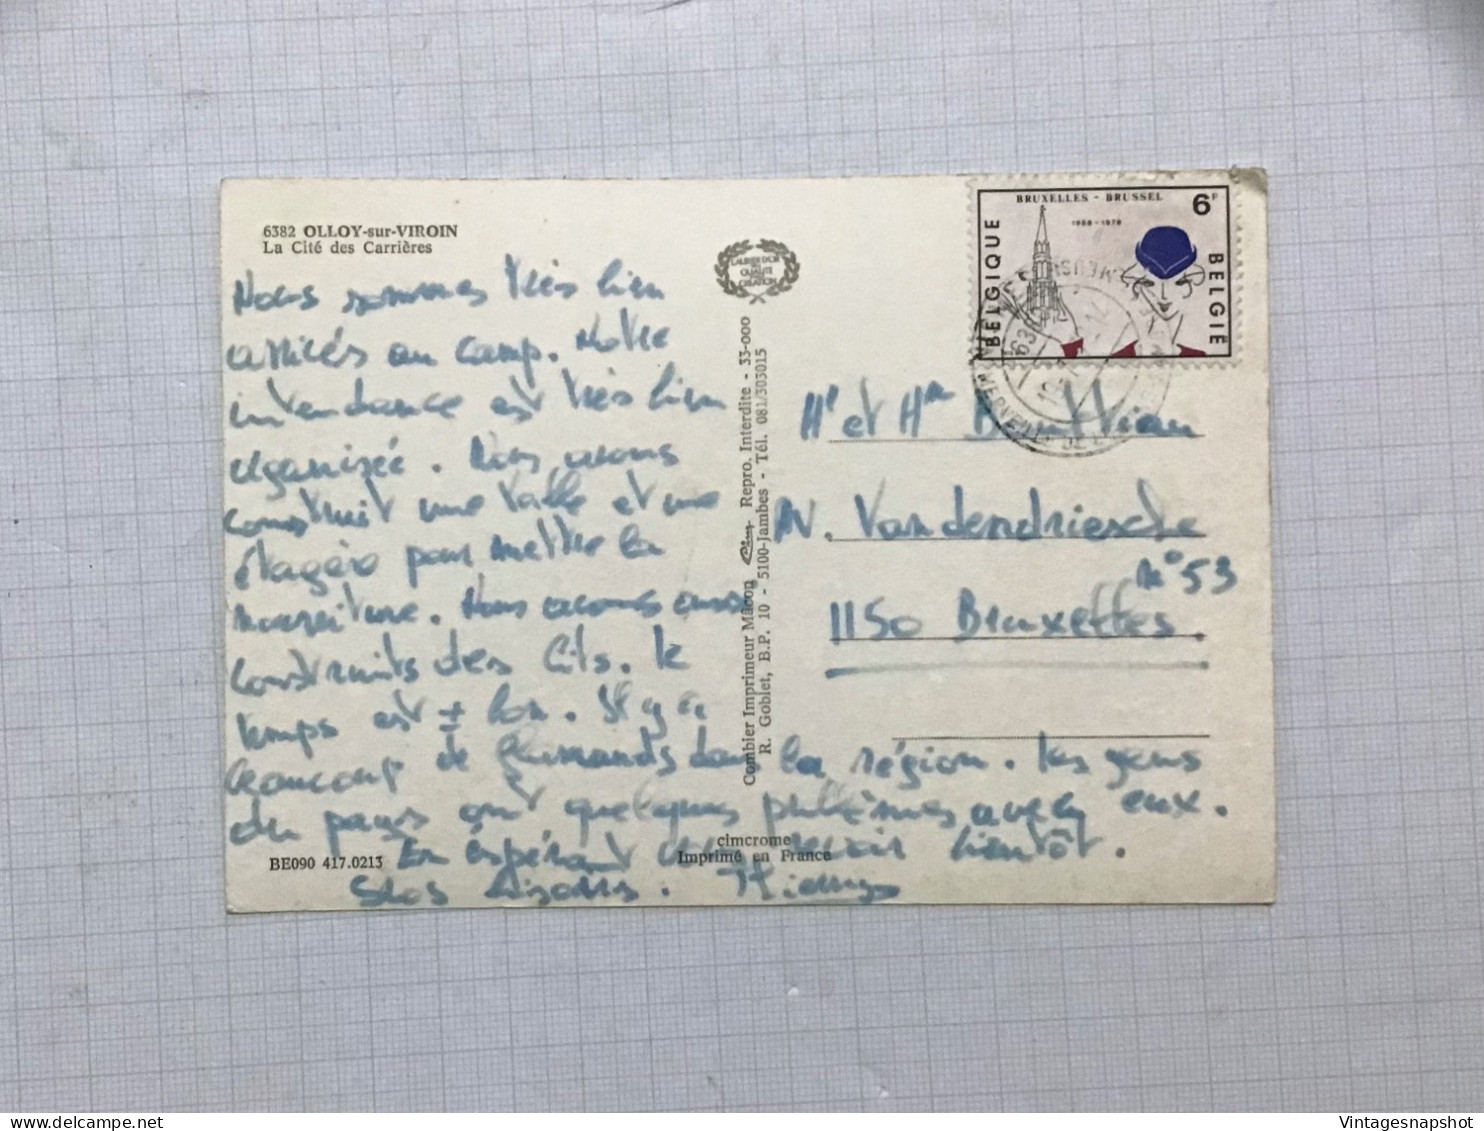 6382 OLLOY-sur-VIROIN
La Cité des Carrières
Nous sommes très bien
arrivés au camp. Notre
intendance est très bien
organisée. Nous avons
construit une table et une
étagère pour mettre la
nourriture. Nous avons aussi
construits des lits. Le
temps est ± bon. Il y a
beaucoup de flamands dans la région. Les gens
du pays ont quelques problèmes avec eux.
En espérant vous revoir bientôt.
Gros bisous. Thierry
LAURIER D'OR
DE
QUALITÉ
CRÉATION
Combier Imprimeur Mâcon Cim Repro. Interdite - 33-000
R. Goblet, B.P. 10 - 5100-Jambes - Tél. 081/303015
BRUXELLES - BRUSSEL 6F
1958-1978
BELGIQUE
BELGIË
Mr et Mme
AV. Vandendriessche
n° 53
1150 Bruxelles.
cimcrome
Imprimé en France
BE090 417.0213
Vintagesnapshot